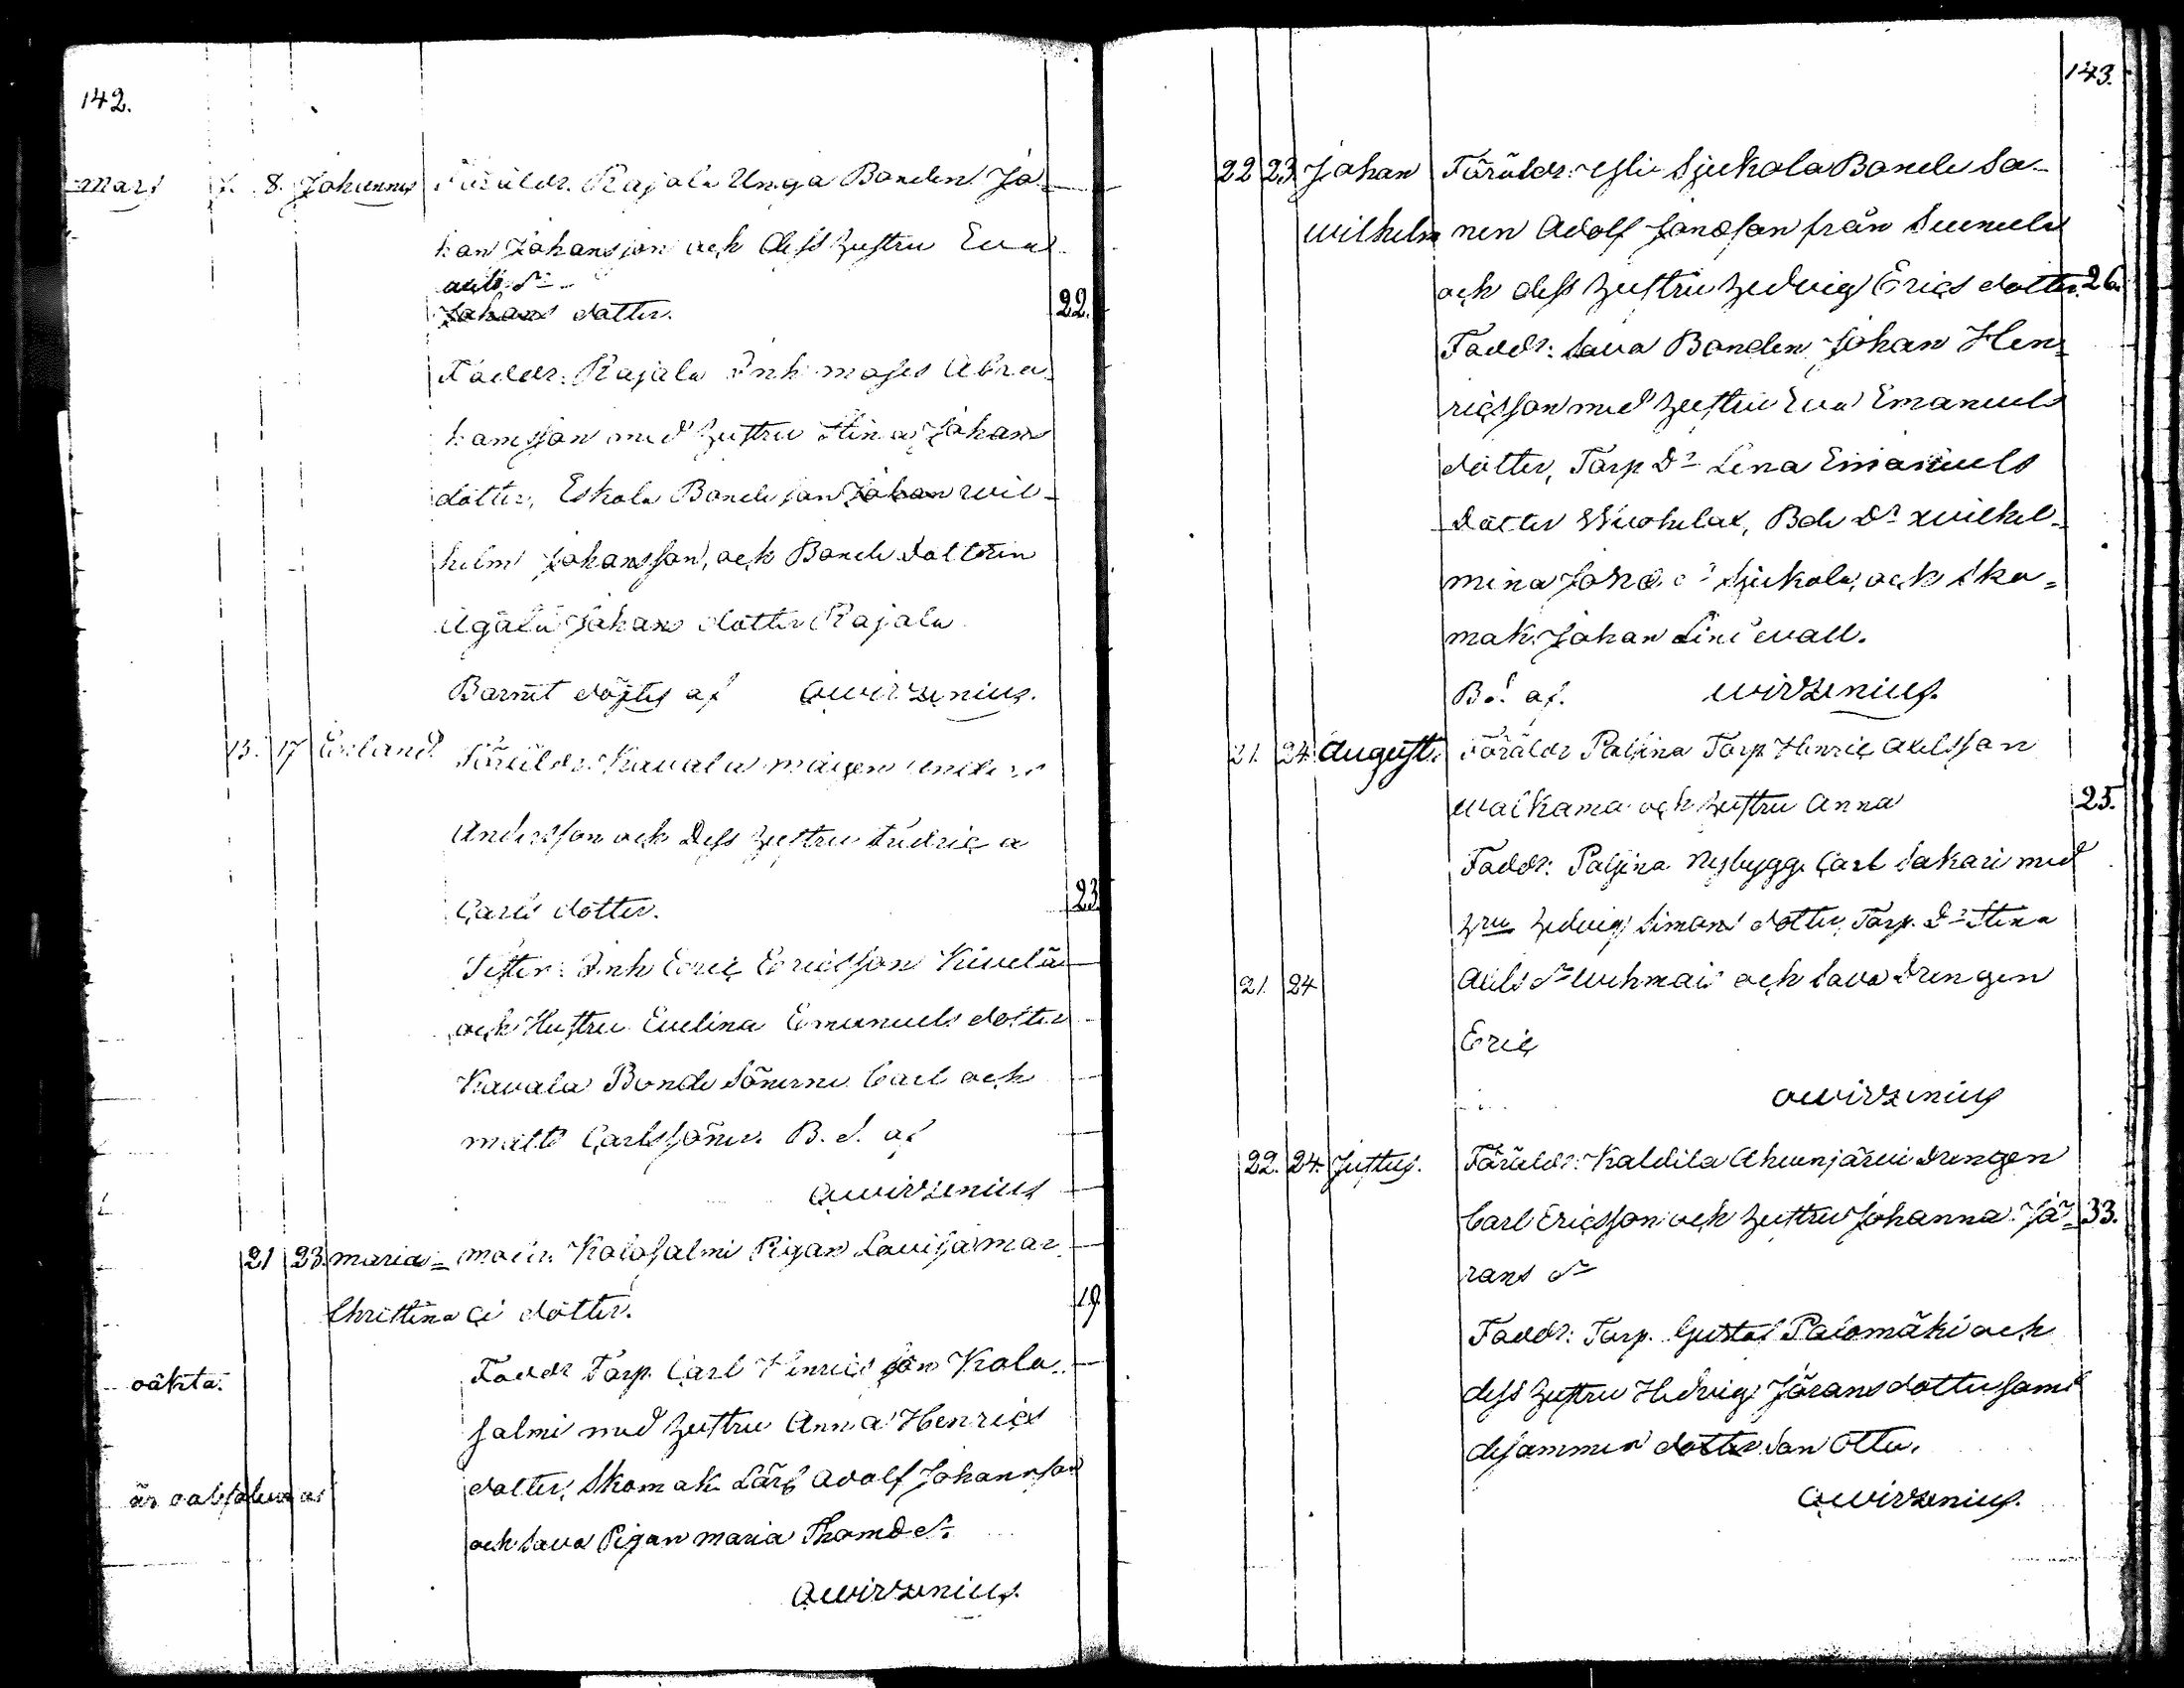 142.
Mars 7. 8. Johannes Föräldr. Rajala Unga Bonden Jo-
han Johansson och dess hustru Eva
Johans dotter. 22.
Faddr: Rajala Inh Moses Abra-
hamsson med hustru Stina Johans
dotter, Eskola Bonde son Johan Wil-
helm Johansson, och Bonde dottren
Johans dotter Rajala
Barnet döptes af A Wirzenius.
15. 17 Erland Föräldr. Kavala Anders
Andersson och Dess hustru Fredrica
Carls dotter. 23.
Test: Inh Eric Ericsson Kivelä
och Hustru Evelina Emanuels dotter
Kavala Bonde Sönerne Carl och
Matts Carlssöner. B. d. af
A Wirzenius
21 23. Maria = Modr. Kolosalmi Pigan Lovisa Mar
Christina ci dotter. 19.
Faddr Torp. Carl Henrics son Kolo-
oäkta.
salmi med hustru Anna Henrics
dotter, Skomak. Lärl Adolf Johansson
är
och Sava Pigan Maria Thomæ dr.
A Wirzenius.
143.
22 23 Johan Föräldr: Yli Sjukola Bonde So-
Wilhelm nen Adolf Jonæson från Suomela
och dess hustru Hedvig Erics dotter. 26.
Faddr: Sava Bonden Johan Hen-
ricsson med hustru Eva Emanuels
dotter, Torp Dr Lena Emanuels
dotter, Bde Dr Wilhel-
mina Jonæ dr Sjukola, och Sko-
mak. Johan Lindevall.
B d. af. Wirzenius.
21. 24. August. Föräldr Paljina Torp. Henric Axelsson
Walkama och hustru Anna 25.
Faddr: Paljina Nybygg. Carl Sakari med
hru Hedvig Simons dotter, Torp. Dr Stina
21. 24 Axels dr och Sava Drengen
Eric
A Wirzenius
22. 24. Justus. Föräldr: Kaldila Ahvenjärvi Drengen
Carl Ericsson och hustru Johanna Jö- 33.
rans dr
Faddr: Torp. Gustaf Palomäki och
dess hustru Hedvig Jörans dotter samt
desammes son Otto.
A Wirzenius.